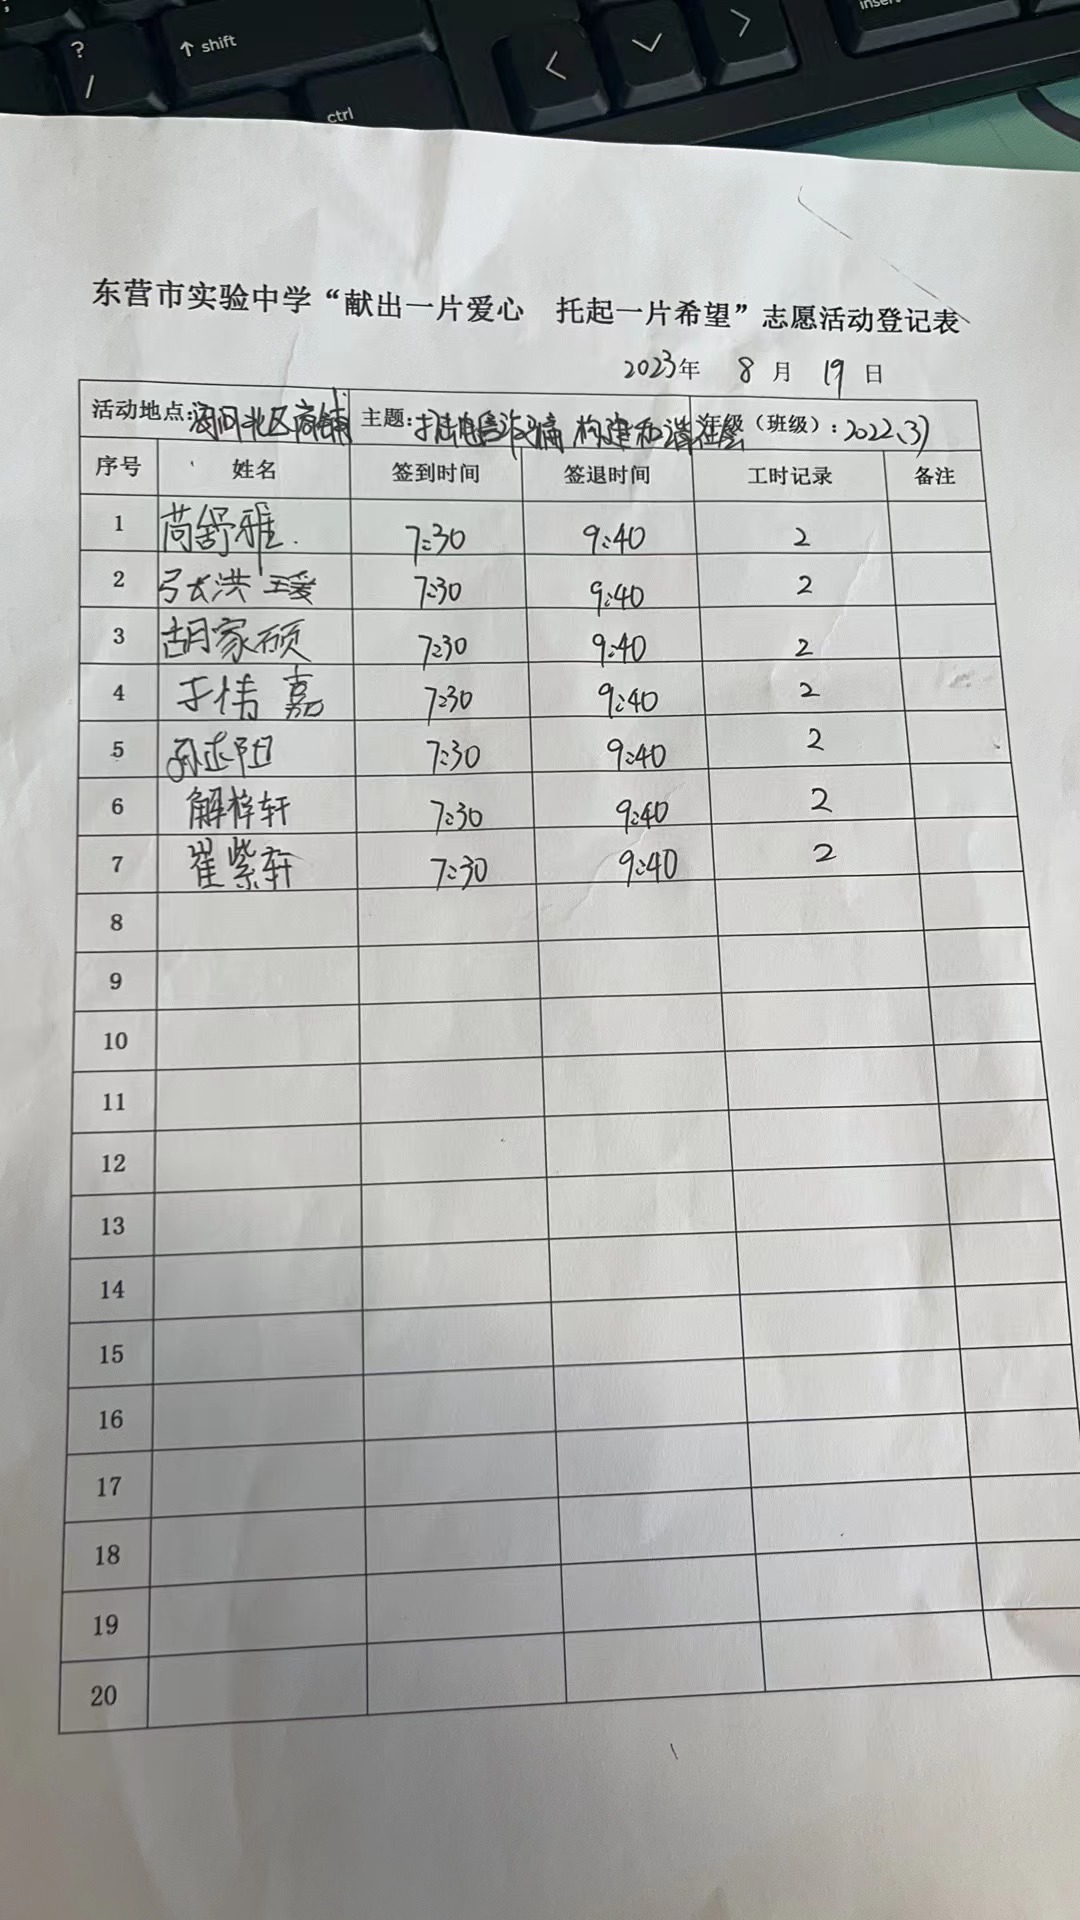 ?
/
↑ shift
ctrl
<
>
东营市实验中学“献出一片爱心 托起一片希望”志愿活动登记表
2023年 8月 19日
活动地点: 北区商铺 主题: 打击电信诈骗 构建和谐社会 年级（班级）: 2022、3
序号 姓名 签到时间 签退时间 工时记录 备注
1 尚舒雅. 7:30 9:40 2
2 张洪瑗 7:30 9:40 2
3 胡家硕 7:30 9:40 2
4 于倩嘉 7:30 9:40 2
5 孙 阳 7:30 9:40 2
6 解梓轩 7:30 9:40 2
7 翟紫轩 7:30 9:40 2
8
9
10
11
12
13
14
15
16
17
18
19
20